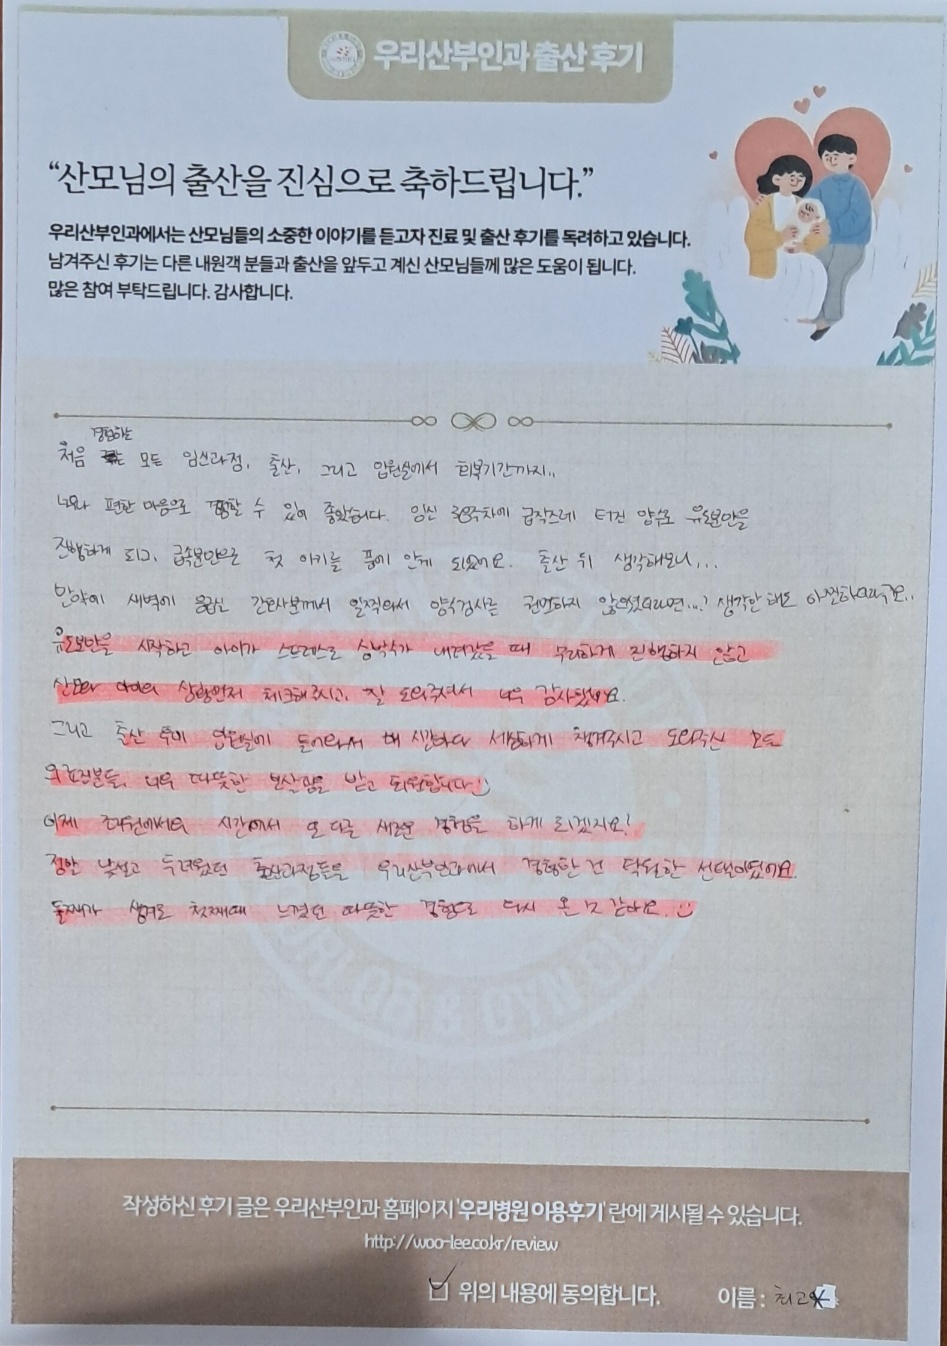 우리산부인과 출산 후기
“산모님의 출산을 진심으로 축하드립니다.”
우리산부인과에서는 산모님들의 소중한 이야기를 듣고자 진료 및 출산 후기를 독려하고 있습니다.
남겨주신 후기는 다른 내원객 분들과 출산을 앞두고 계신 산모님들께 많은 도움이 됩니다.
많은 참여 부탁드립니다. 감사합니다.
경험하는
처음 모든 임신과정, 출산, 그리고 입원실에서 회복기간까지..
너무 편한 마음으로 경험할 수 있어 좋았습니다. 임신 주차에 급작스레 터진 양수로 유도분만을
진행하게 되고, 급속분만으로 첫 아기를 품에 안게 되었어요. 출산 뒤 생각해보니...
만약에 새벽에 간호사분께서 일찍와서 양수검사를 권면하지 않으셨더라면...? 생각만 해도 아찔하더라구요..
유도분만을 시작하고 아이가 스트레스로 심박수가 내려갔을 때 무리하게 진행하지 않고
산모와 아이의 상황먼저 체크해주시고, 잘 도와주셔서 너무 감사했어요.
그리고 출산 후에 입원실에 들어와서 매 시간마다 세심하게 챙겨주시고 도와주신 모든
의료진분들, 너무 따뜻한 보살핌을 받고 퇴원합니다 :)
이제 조리원에서의 시간에서 또 다른 새로운 경험을 하게 되겠지요?
정말 낯설고 두려웠던 출산과정들을 우리산부인과에서 경험한 건 탁월한 선택이었어요.
둘째가 생겨도 첫째때 느꼈던 따뜻한 경험으로 다시 올 것 같아요. :)
WOORI OB & GYN CLINIC
작성하신 후기 글은 우리산부인과 홈페이지 '우리병원 이용후기' 란에 게시될 수 있습니다.
http://woo-lee.co.kr/review
위의 내용에 동의합니다. 이름 : 최고